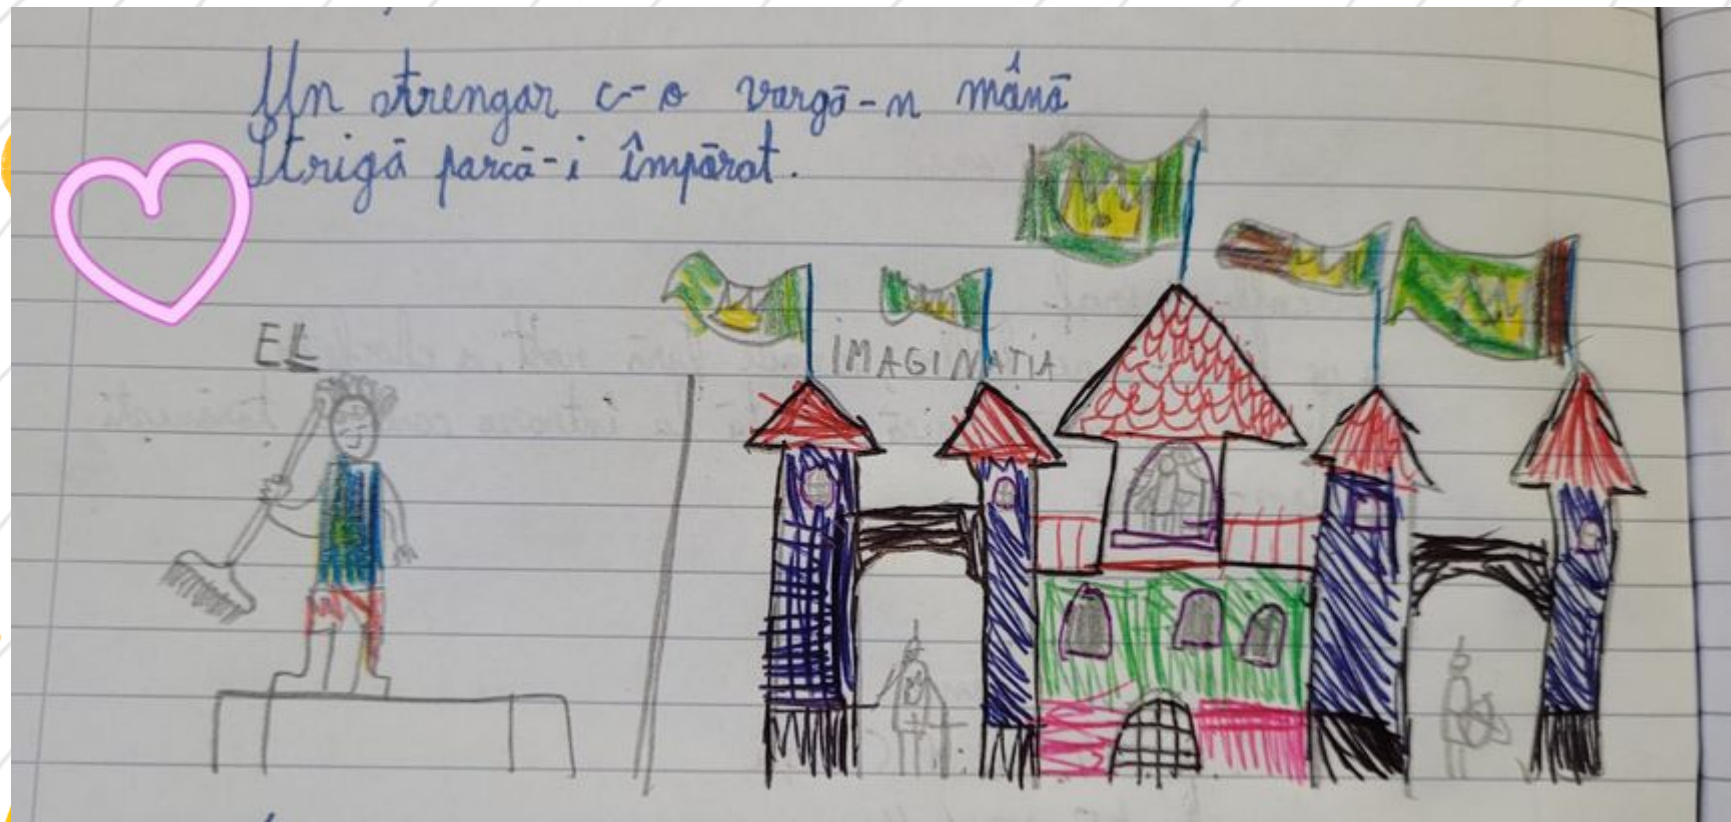 Un strengar c-o vargă-n mână
Strigă parcă-i împărat.
EL
IMAGINAȚIA